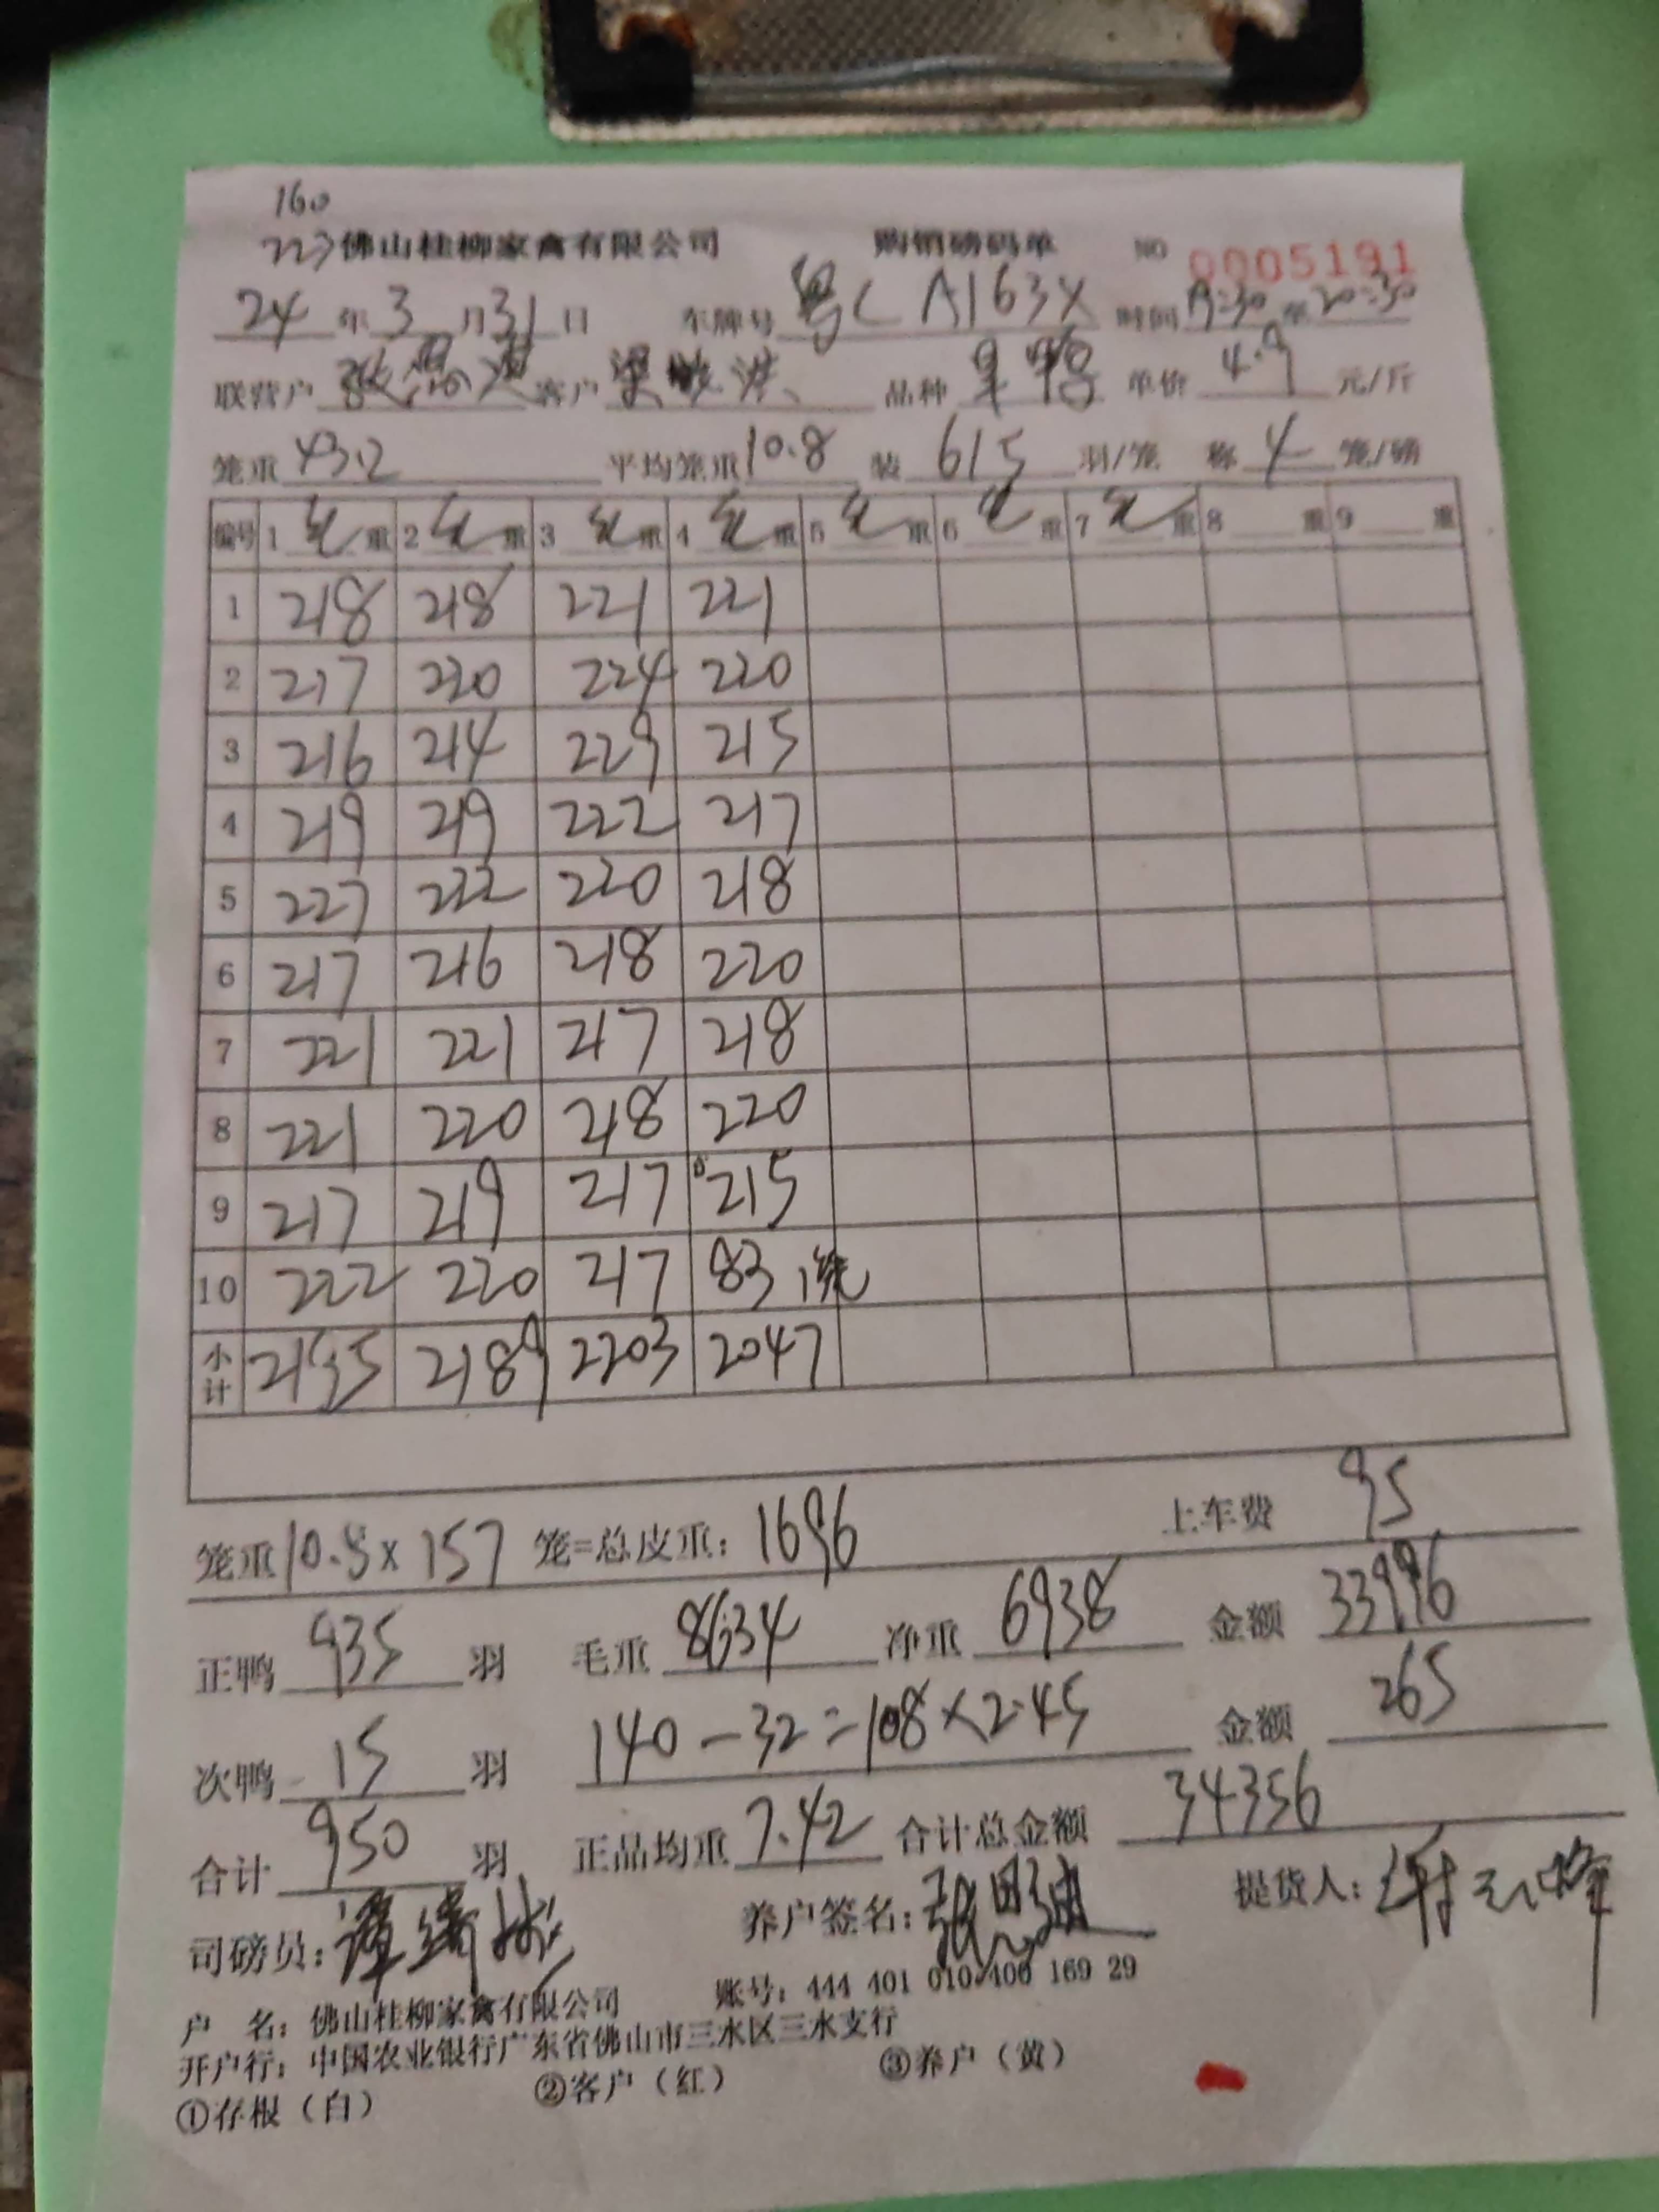 160
227佛山桂柳家禽有限公司 购销磅码单 NO 0005191
24年3月31日 车牌号 粤C A163X 时间 19:30至20:30
联营户 张 客户 梁 洪 品种 鸭 单价 4.9 元/斤
笼重 43.2 平均笼重 10.8 装 6/5 羽/笼 称 4 笼/磅
编号 1 毛重 2 毛重 3 毛重 4 毛重 5 毛重 6 毛重 7 毛重 8 重 9 重
1 218 218 221 221
2 217 220 224 220
3 216 214 229 215
4 219 219 222 217
5 227 222 220 218
6 217 216 218 220
7 221 221 217 218
8 221 220 218 220
9 217 219 217 215
10 222 220 217 83 1笼
小计 2195 2189 2203 2047
笼重 10.8 x 157 笼=总皮重: 1696 上车费 95
正鸭 935 羽 毛重 8634 净重 6938 金额 33996
次鸭 15 羽 140-32=108×2.45 金额 265
合计 950 羽 正品均重 7.42 合计总金额 34356
司磅员: 谭 养户签名: 张 提货人:
户 名: 佛山桂柳家禽有限公司 账号: 444 401 010 400 169 29
开户行: 中国农业银行广东省佛山市三水区三水支行
①存根(白) ②客户(红) ③养户(黄)